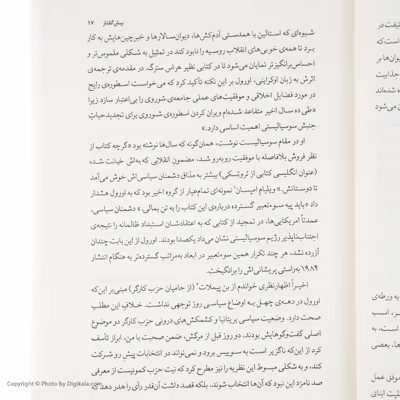 پیش‌گفتار ۱۷
شیوه‌ای که استالین با همدستی آدم‌کش‌ها، دیوان‌سالارها و خبرچین‌هایش به کار
برد تا همه‌ی خوبی‌های انقلاب روسیه را نابود کند در تمثیل به شکلی ملموس‌تر و
احساس‌برانگیزتر نمایان می‌شود تا در کتابی نظیر هراس سترگ. در مقدمه‌ی ترجمه‌ی
اثرش به زبان اوکراینی، اورول بر این نکته تأکید کرد که می‌خواست اسطوره‌ی رایج
در مورد فضایل اخلاقی و موفقیت‌های عملی جامعه‌ی شوروی را بی‌اعتبار سازد زیرا
«طی ده سال اخیر متقاعد شده‌ام ویران کردن اسطوره‌ی شوروی برای تجدید حیات
جنبش سوسیالیستی اهمیت اساسی دارد.»
او در مقام سوسیالیست نوشت، همان‌گونه که سال‌ها نوشته بود «گرچه کتاب از
نظر فروش بلافاصله با موفقیت روبه‌رو شد، مضمون انقلابی که به‌اش خیانت شده
(عنوان انگلیسی کتابی از تروتسکی) بیشتر به مذاق دشمنان سیاسی‌اش خوش می‌آمد
تا دوستانش.» ویلیام امپسان نمونه‌ای تمام‌عیار از گروه اخیر بود که به اورول هشدار
داد «باید پیه سوءتعبیر گسترده درباره‌ی این کتاب را به تن بمالی.» دشمنان سیاسی،
عمدتاً آمریکایی‌ها، در تمجید از کتابی که به اعتقادشان استبداد ظالمانه را نتیجه‌ی
اجتناب‌ناپذیر رژیم سوسیالیستی نشان می‌داد یکصدا بودند. اورول از این بابت چندان
آزرده نشد، هر چند تکرار همین سوءتعبیر در ابعاد به‌مراتب گسترده‌تر به هنگام انتشار
۱۹۸۴ به‌راستی پریشانی‌اش را برانگیخت.
اخیراً اظهارنظری خواندم از بن پیملات (از حامیان حزب کارگر) مبنی‌بر این‌که
اورول در دهه‌ی چهل به اوضاع سیاسی روز توجهی نداشت. خلاف این مطلب
صحت دارد. وضعیت سیاسی بریتانیا و کشمکش‌های درونی حزب کارگر دو موضوع
اصلی گفت‌وگوهایش بودند. دو روز قبل از مرگش، ضمن صحبت با من، ابراز تأسف
کرد از این‌که ناگزیر است به سوییس برود و نمی‌تواند در انتخابات پیش رو شرکت
کند، و به شکلی مبسوط این نظریه را نیز مطرح کرد که نیت حزب کمونیست از معرفی
صد نامزد این نبود که آن‌ها انتخاب شوند، بلکه قصد داشت آن‌قدر رأی را هدر دهد که
Copyright © Photo by Digikala.com